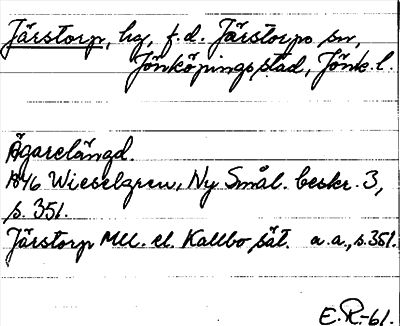 Järstorp, hg, f.d. Järstorps sn,
Jönköpings stad, Jönk.l.
Ägarelängd.
1846 Wieselgren, Ny Smål. beskr. 3,
s. 351.
Järstorp Mll. el. Kallbo sät. a.a., s. 351.
E.R.-61.